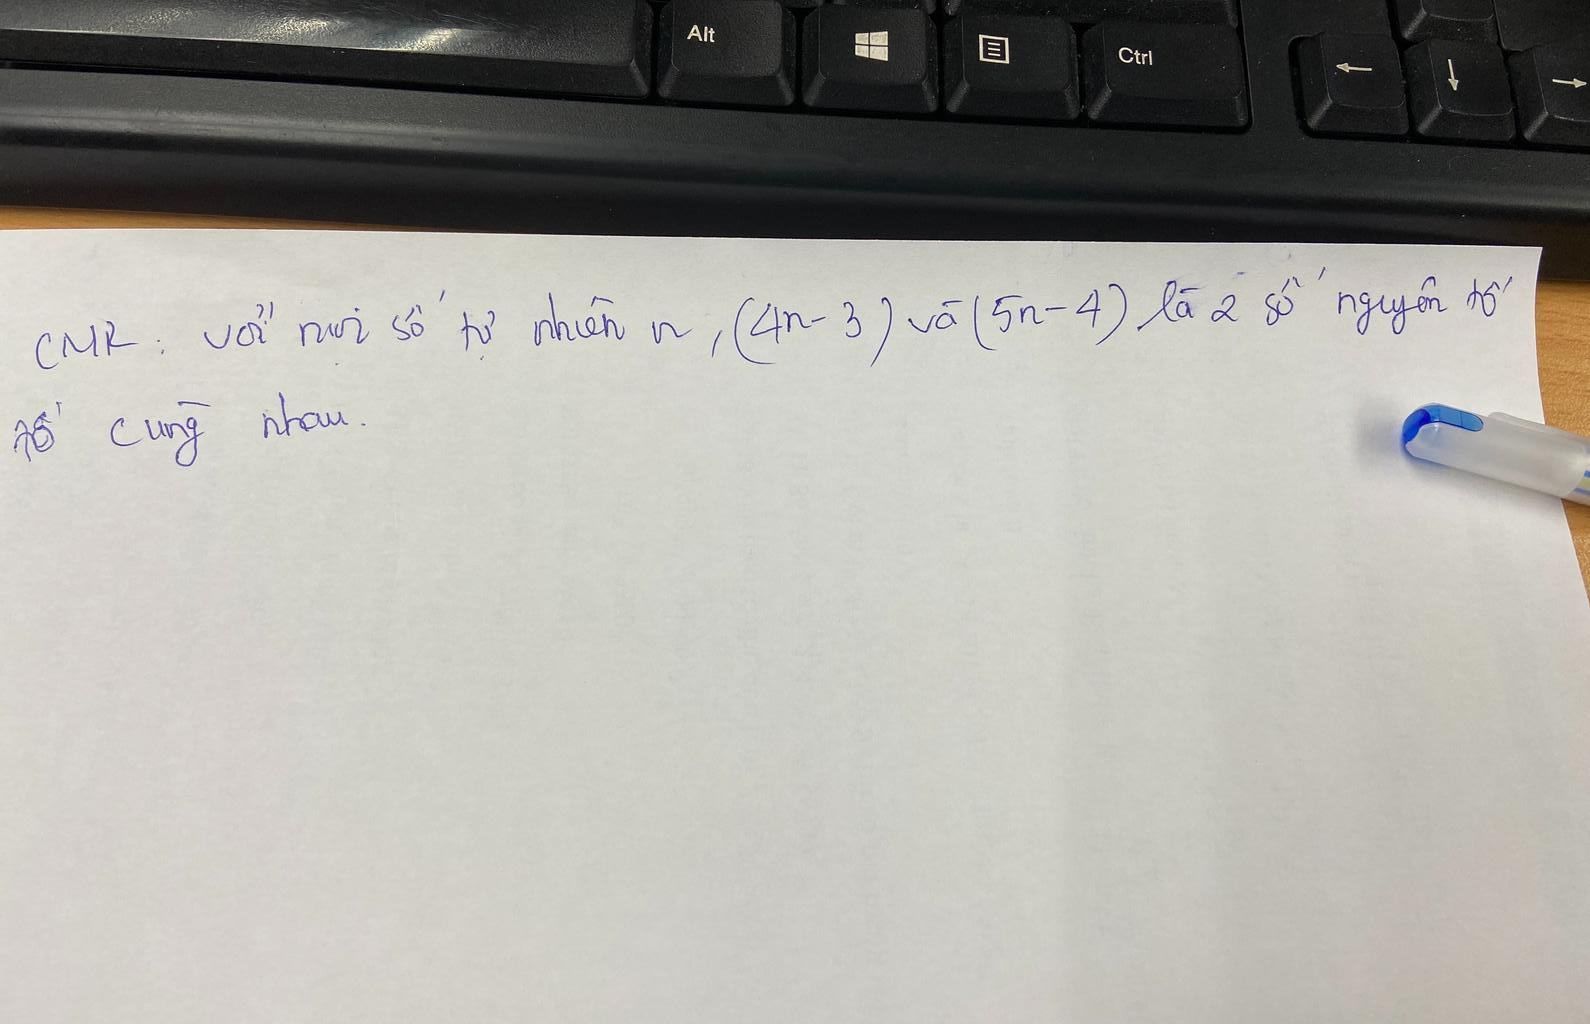 Alt
Ctrl
CMR: với mọi số tự nhiên n, (4n-3) và (5n-4) là 2 số nguyên tố
tố cùng nhau.